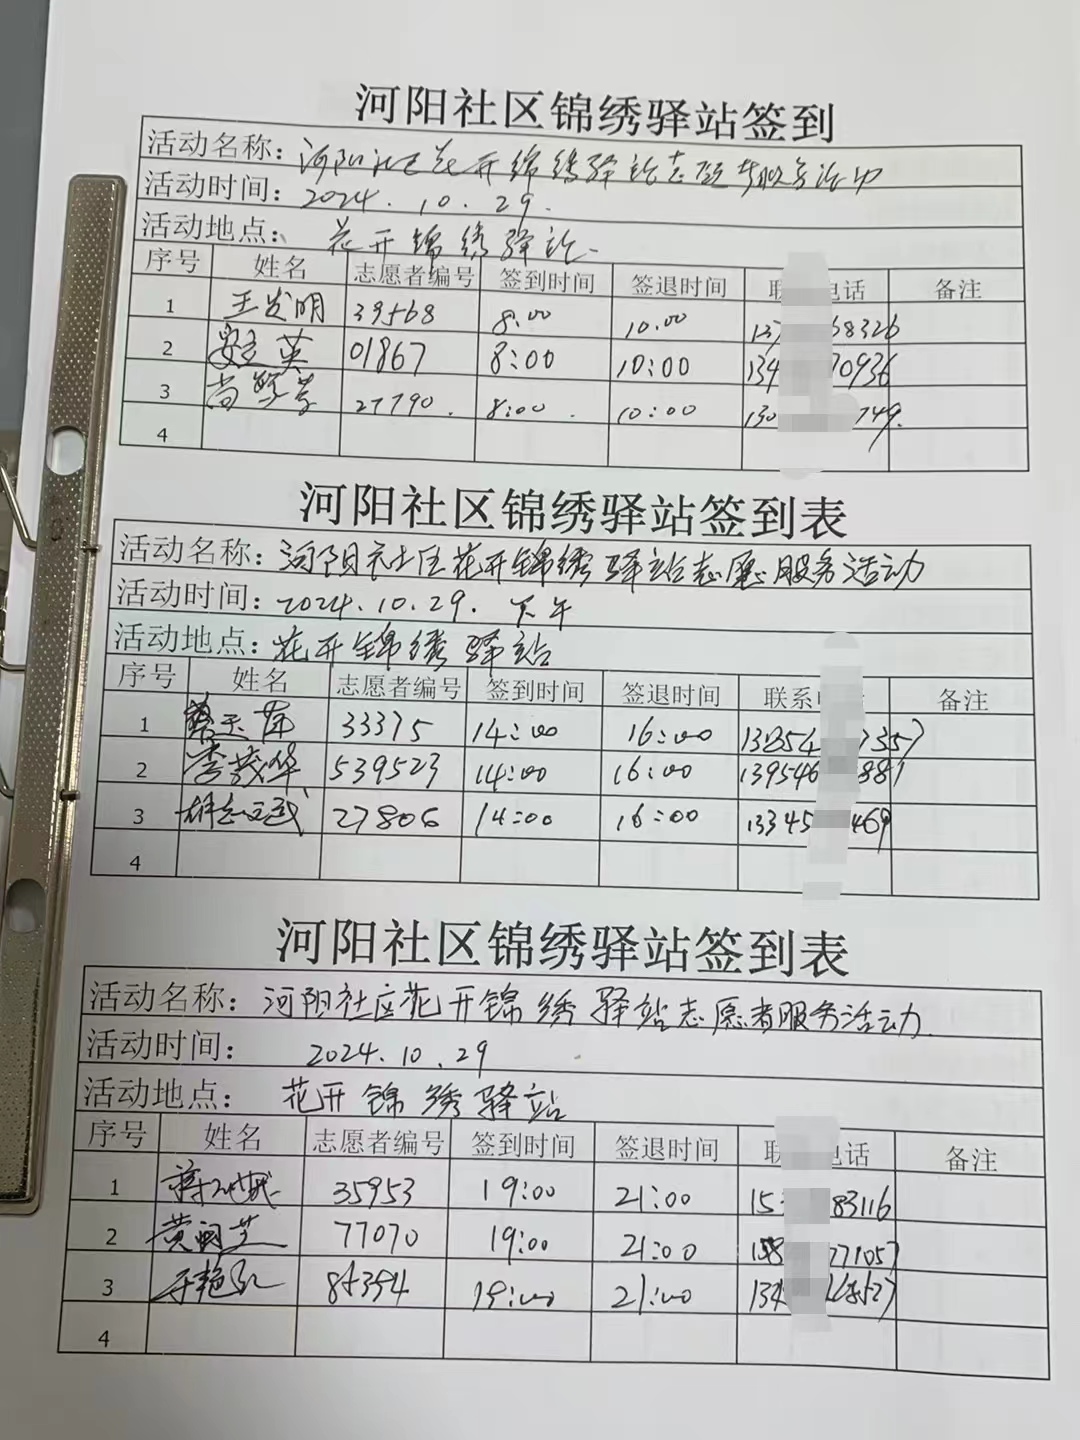 河阳社区锦绣驿站签到
活动名称：河阳社区花开锦绣驿站志愿者服务活动
活动时间：2024.10.29.
活动地点： 花开锦绣驿站
序号 姓名 志愿者编号 签到时间 签退时间 联 电话 备注
1 王发明 39568 8:00 10:00 137 68326
2 英 01867 8:00 10:00 134 70936
3 尚 27790. 8:00. 10:00 130 749.
4
河阳社区锦绣驿站签到表
活动名称：河阳社区花开锦绣驿站志愿服务活动
活动时间：2024.10.29. 下午
活动地点：花开锦绣驿站
序号 姓名 志愿者编号 签到时间 签退时间 联系 备注
1 33375 14:00 16:00 357
2 李茂华 539523 14:00 16:00 139546 881
3 27806 14:00 16:00 13345 469
4
河阳社区锦绣驿站签到表
活动名称：河阳社区花开锦绣驿站志愿者服务活动
活动时间： 2024.10.29
活动地点： 花开锦绣驿站
序号 姓名 志愿者编号 签到时间 签退时间 联 电话 备注
1 35953 19:00 21:00 15 83116
2 黄 芝 77070 19:00 21:00 71057
3 于艳红 19:00 21:00
4